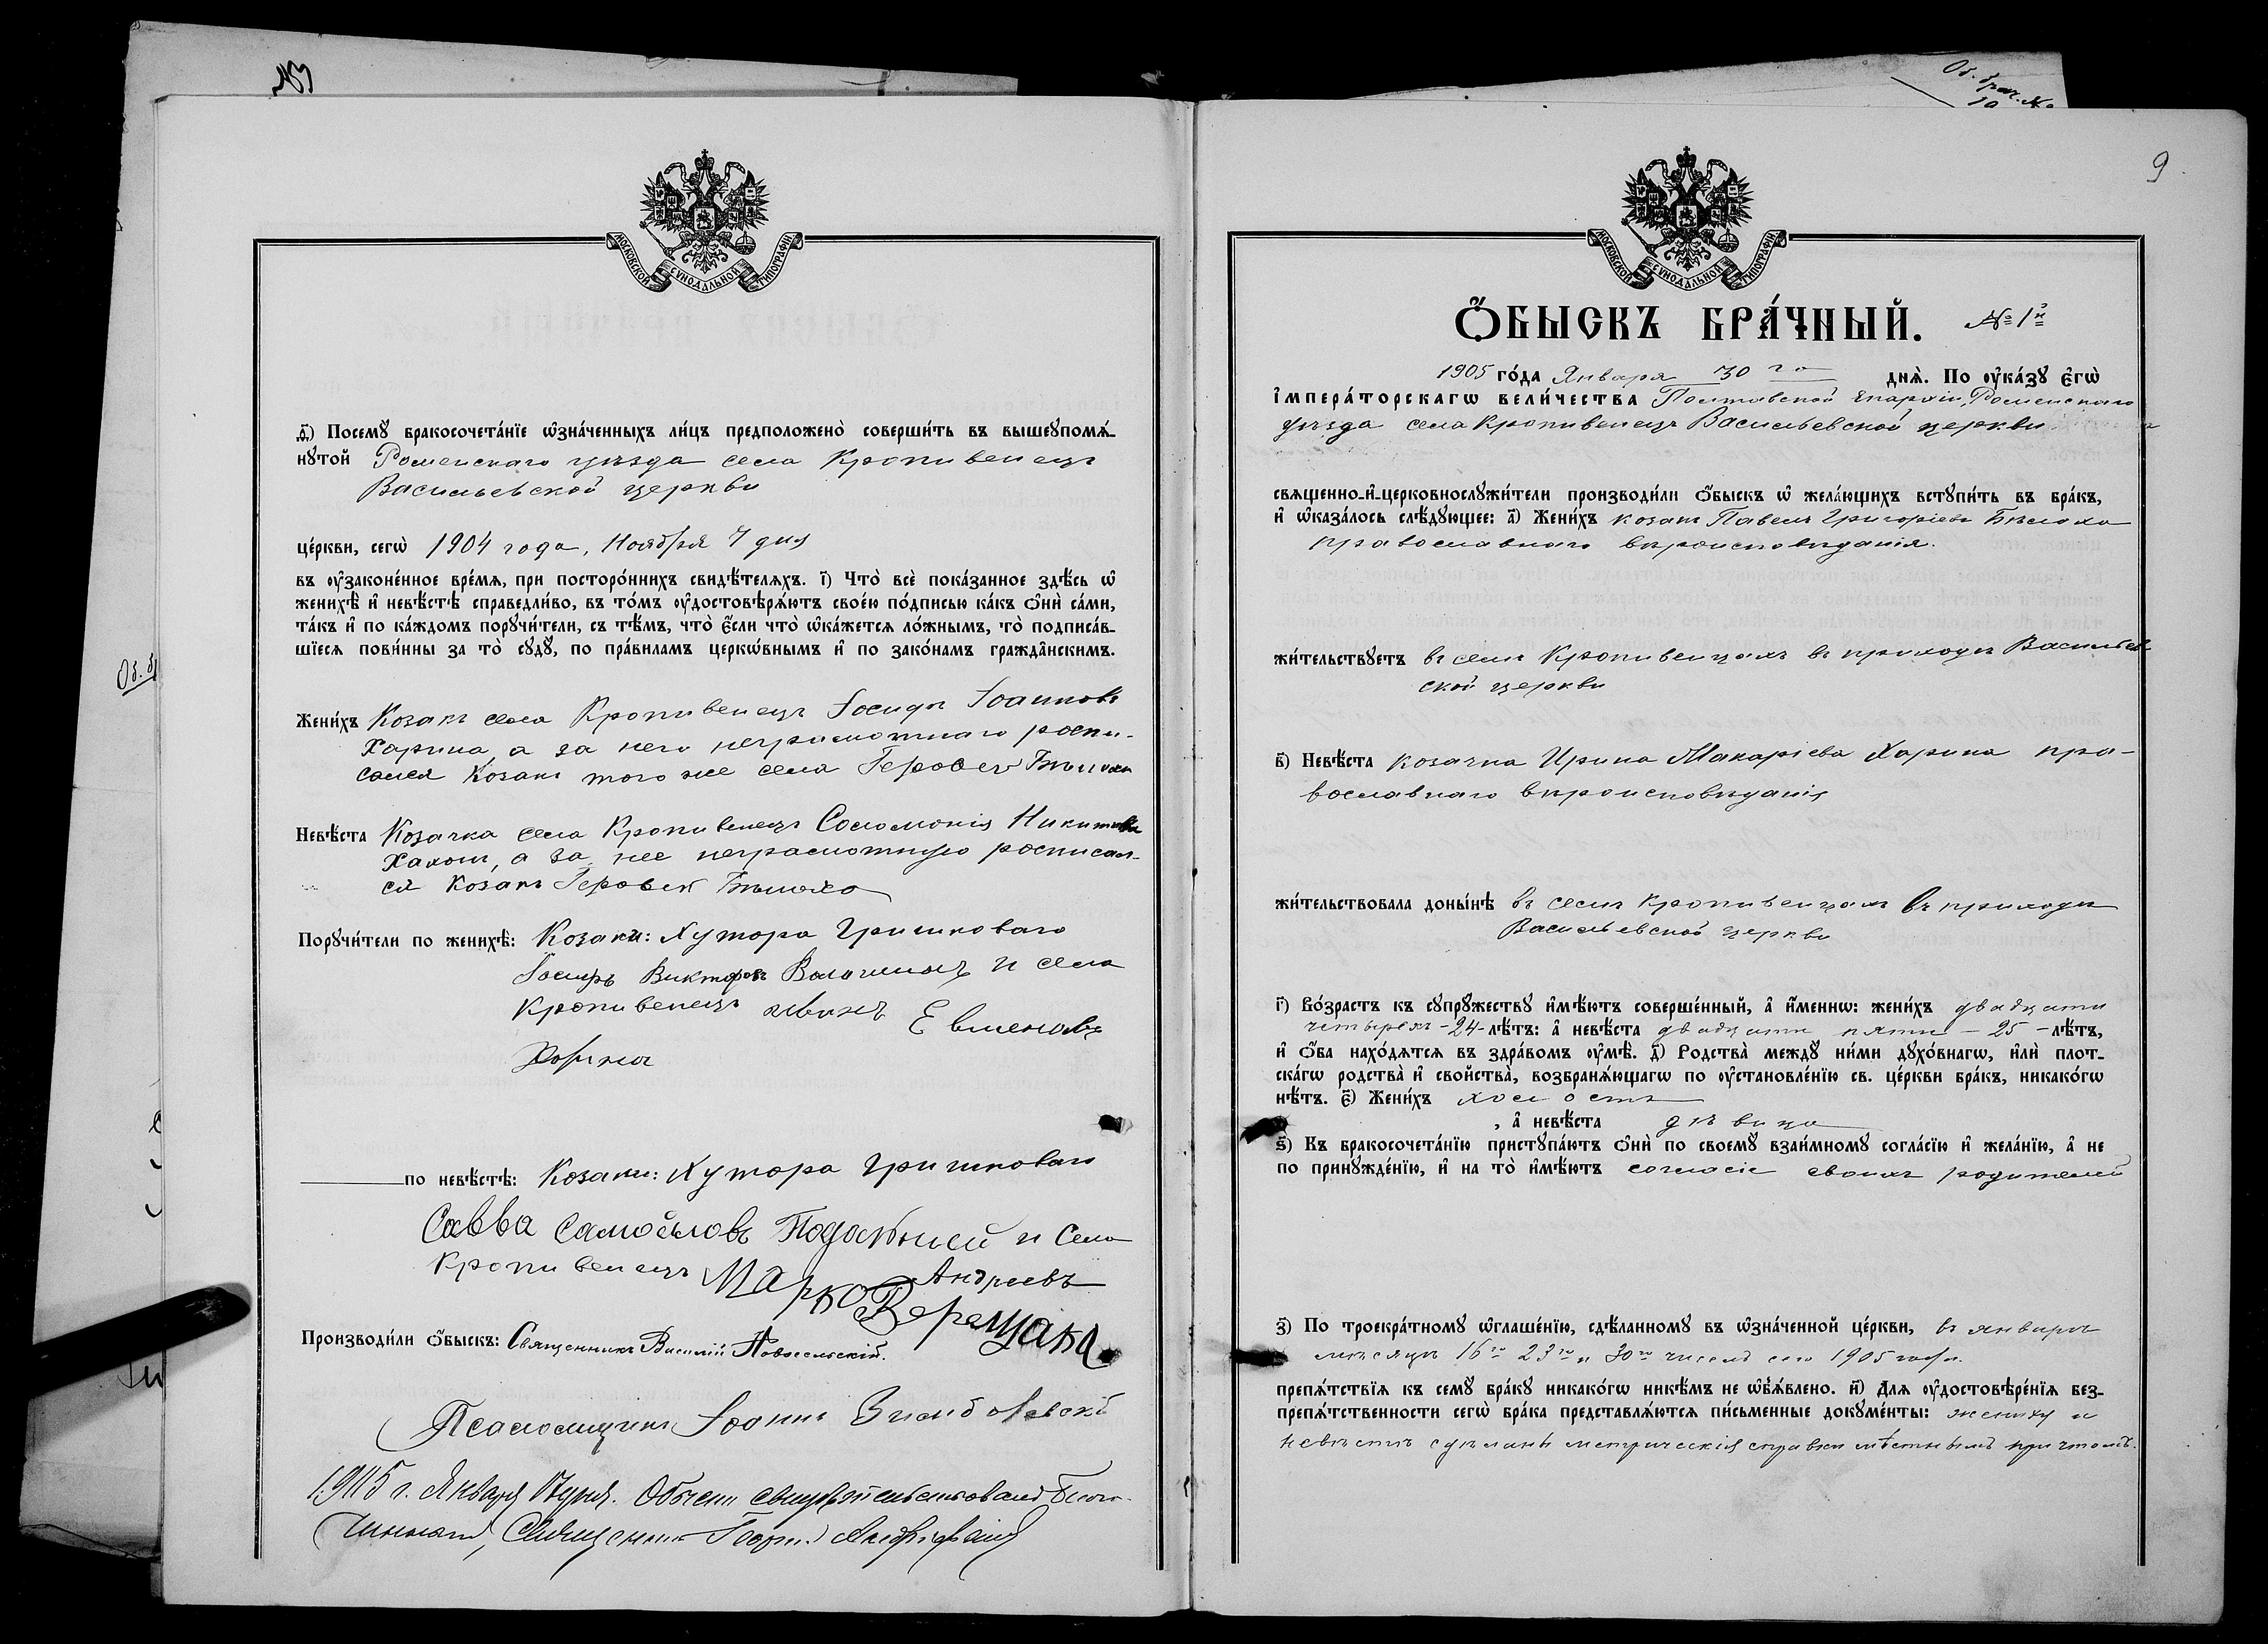 МОСКОВСКОЙ СѴНОДАЛЬНОЙ ТИПОГРАФІИ
ѳ҃) Посемꙋ̀ бракосочета́нїе ѡ҆зна́ченныхъ ли́цъ предположено̀ соверши́ть въ вышеꙋпомѧ́-
нꙋтой Роменскаго уѣзда села Кропивенецъ
Васильевской церкви
це́ркви, сегѡ̀ 1904 года, Ноября 7 дня
въ ᲂу҆законе́нное вре́мѧ, при посторо́ннихъ свидѣ́телѧхъ. і҃) Что̀ всѐ пока́занное здѣ́сь ѡ҆
женихѣ̀ и҆ невѣ́стѣ справедли́во, въ то́мъ ᲂу҆достовѣрѧ́ютъ свое́ю по́дписью ка́къ ѻ҆нѝ са́ми,
та́къ и҆ по ка́ждомъ порꙋчи́тели, съ тѣ́мъ, что̀ є҆́сли что̀ ѡ҆ка́жетсѧ ло́жнымъ, то̀ подписа́в-
шїесѧ пови́нны за то̀ сꙋдꙋ̀, по пра́виламъ церко́внымъ и҆ по зако́намъ гражда̑нскимъ.
Жени́хъ Козакъ села Кропивенецъ Іосифъ Іоанновъ
Харина, а за него неграмотнаго роспи-
сался Козакъ того же села
Невѣ́ста Козачка села Кропивенецъ Соломонія Никитова
а за нее неграмотную росписал-
ся Козакъ
Порꙋчи́тели по женихѣ̀: Козаки: Хутора Гришковаго
Іосифъ Викторовъ и села
Кропивенецъ Евменовъ
Харина
по невѣ́стѣ: Козаки: Хутора Гришковаго
Савва Самойловъ и села
Кропивенецъ Марко Андреевъ
Верещака
Производи́ли ѻ҆́быскъ: Священникъ Василій Новосельскій.
Псаломщикъ Іоаннъ
1905 г. Января
Священникъ
9
МОСКОВСКОЙ СѴНОДАЛЬНОЙ ТИПОГРАФІИ
Ѻ҆́БЫСКЪ БРА́ЧНЫЙ. № 1й
1905 го́да Января 30 го днѧ̀. По ᲂу҆ка́зꙋ є҆гѡ̀
і҆мпера́торскагѡ вели́чества Полтавской Епархіи, Роменскаго
уѣзда села Кропивенецъ Васильевской церкви
свѧщенно-и҆-церковнослꙋжи́тели производи́ли ѻ҆́быскъ ѡ҆ жела́ющихъ встꙋпи́ть въ бра́къ,
и҆ ѡ҆каза́лось слѣ́дꙋющее: а҃) Жени́хъ козакъ Павелъ Григоріевъ Бѣлоха
православнаго вѣроисповѣданія.
жи́тельствꙋетъ въ селѣ Кропивенцахъ въ приходѣ Васильев-
ской церкви
в҃) Невѣ́ста козачка Ирина Макаріева Харина пра-
вославнаго вѣроисповѣданія
жи́тельствовала доны́нѣ въ селѣ Кропивенцахъ въ приходѣ
Васильевской церкви
г҃) Во́зрастъ къ сꙋпрꙋ́жествꙋ и҆мѣ́ютъ соверше́нный, а҆ и҆́меннѡ: жени́хъ двадцати
четырехъ - 24 - лѣ́тъ: а҆ невѣ́ста двадцати пяти - 25 - лѣ́тъ,
и҆ ѻ҆́ба нахо́дѧтсѧ въ здра́вомъ ᲂу҆мѣ̀. д҃) Родства̀ междꙋ̀ ни́ми дꙋхо́внагѡ, и҆лѝ плот-
ска́гѡ родства̀ и҆ свойства̀, возбранѧ́ющагѡ по ᲂу҆становле́нїю св. це́ркви бра́къ, никако́гѡ
нѣ́тъ. є҃) Жени́хъ холостъ
, а҆ невѣ́ста дѣвица
ѕ҃) Къ бракосочета́нїю пристꙋпа́ютъ ѻ҆нѝ по своемꙋ̀ взаи́мномꙋ согла́сїю и҆ жела́нїю, а҆ не
по принꙋжде́нїю, и҆ на то̀ и҆мѣ́ютъ согласіе своихъ родителей
з҃) По троекра́тномꙋ ѡ҆глаше́нїю, сдѣ́ланномꙋ въ ѡ҆зна́ченной це́ркви, въ январѣ
мѣсяцѣ 16го 23го и 30го числъ сего 1905 года.
препѧ́тствїѧ къ семꙋ̀ бра́кꙋ никако́гѡ никѣ́мъ не ѡ҆б̾ѧ́влено. и҃) Длѧ ᲂу҆достовѣре́нїѧ без-
препѧ́тственности сегѡ̀ бра́ка представлѧ́ютсѧ пи́сьменные докꙋме́нты: жениху и
невѣстѣ сдѣланы метрическія справки мѣстнымъ причтомъ.